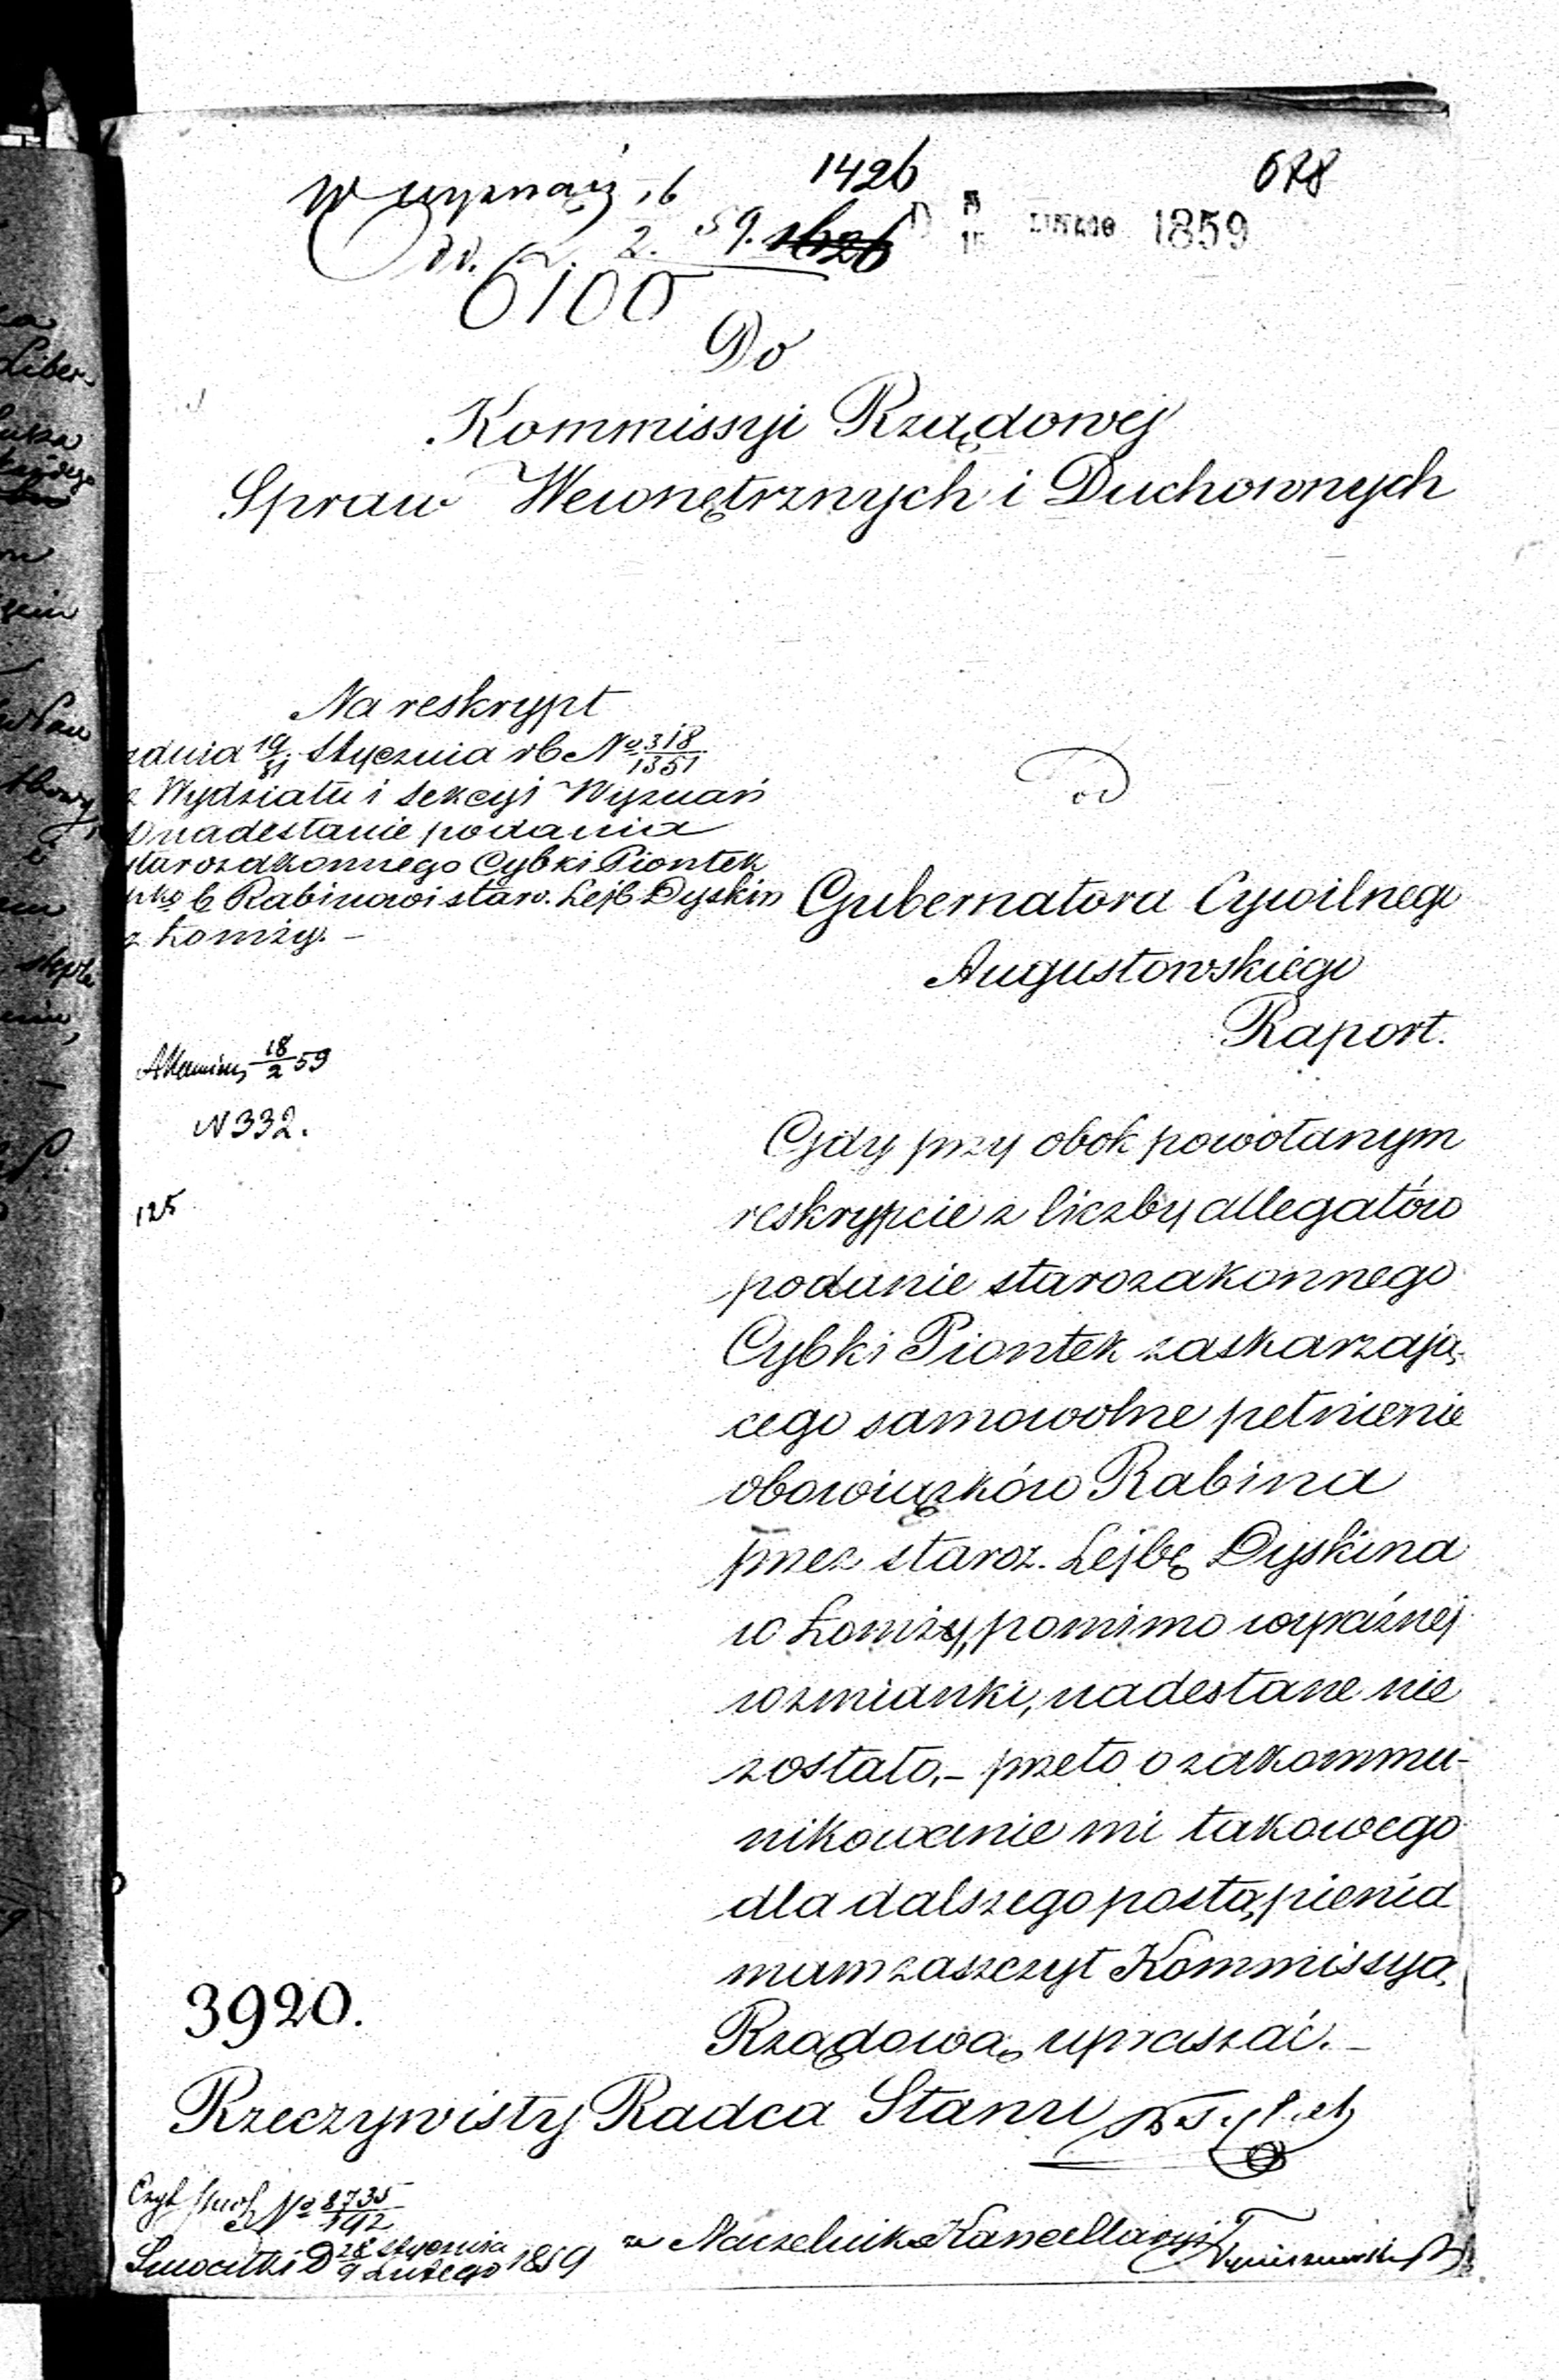 w wyznań 16
1426
678
2. 59. 1626
LUTEGO 1859
6100
Do
Kommissyi Rządowej
Spraw Wewnętrznych i Duchownych
Na reskrypt
z dnia 19/31 Stycznia rb No 318/1351
z Wydziału i Sekcyi Wyznań
O nadesłanie podania
starozakonnego Cybki Piontek
pko b Rabinowi staro. Lejb Dyskin
z Łomży. –
od
Gubernatora Cywilnego
Augustowskiego
Raport.
18/2 59
N 332.
125
Gdy przy obok powołanym
reskrypcie z liczby allegatów
podanie starozakonnego
Cybki Piontek zaskarzają-
cego samowolne pełnienie
obowiązków Rabina
przez staroz. Lejbę Dyskina
w Łomży, pomimo wyraźnej
wzmianki, nadesłane nie
zostało, – przeto o zakommu-
nikowanie mi takowego
dla dalszego postąpienia
mam zaszczyt Kommissyą
Rządową upraszać. –
3920.
Rzeczywisty Radca Stanu
No 8735/192
Suwałki D 28 Stycznia/9 Lutego 1859
za Naczelnika Kancellaryi